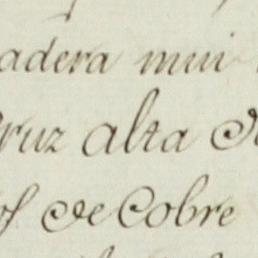 adera mui
Cruz alta de
de Cobre